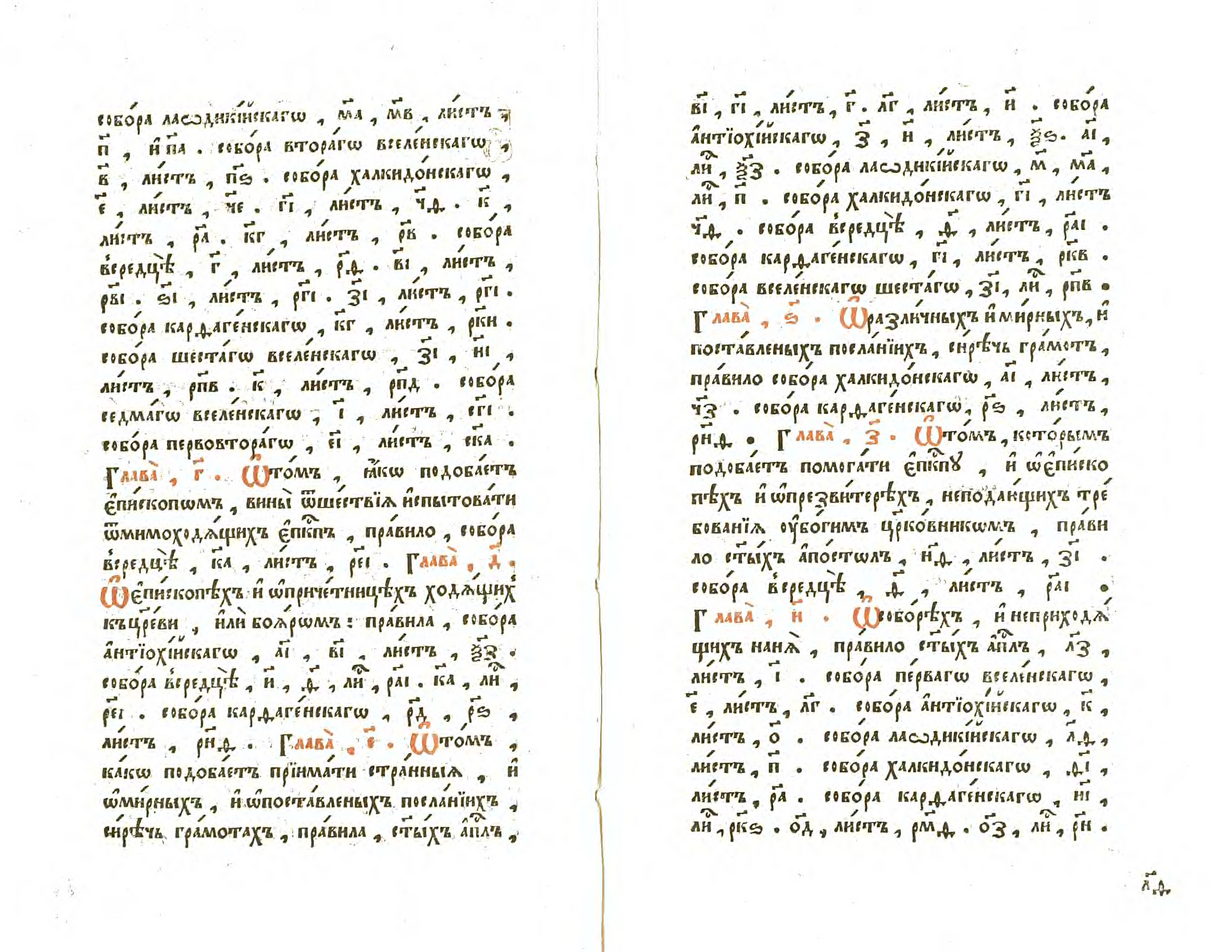 собо́ра лаѡдикі́йскагѡ , м҃а , м҃в , ли́стъ ,
п҃ , и҆ п҃а . собо́ра вторагѡ вселе́нскагѡ ,
в҃ , ли́стъ , п҃ѕ . собо́ра халкидо́нскагѡ ,
є҃ , ли́стъ , ч҃е . г҃і , ли́стъ , ч҃ѳ . к҃ ,
ли́стъ , р҃а . к҃г , ли́стъ , р҃в . собо́ра
в̾середцѣ̀ , г҃ , ли́стъ , р҃ѳ . в҃і , ли́стъ ,
р҃ві . ѕ҃і , ли́стъ , р҃гі . з҃і , ли́стъ , р҃гі .
собо́ра карѳаге́нскагѡ , к҃г , ли́стъ , р҃ки .
собо́ра шеста́гѡ вселе́нскагѡ , з҃і , и҃і ,
ли́стъ , р҃пв . к҃ , ли́стъ , р҃пд . собо́ра
седма́гѡ вселе́нскагѡ , і҃ , ли́стъ , с҃гі .
собо́ра первовтора́гѡ , є҃і , ли́стъ , с҃ка .
Глава̀ , г҃ . Ѡ҆то́мъ , ꙗ҆́кѡ подоба́етъ
є҆пи́скопѡмъ , вины̀ ѿше́ствїѧ и҆спытова́ти
ѿмимоходѧ́щихъ є҆пк҇пъ , пра́вило , собо́ра
в̾середцѣ̀ , к҃а , ли́стъ , р҃еі . Глава̀ , д҃ .
Ѡ҆є҆пи́скопѣхъ и҆ ѡ҆приче́тницѣхъ ходѧ́щихъ
къцр҃еви , и҆лѝ боѧ́рѡмъ : пра́вила , собо́ра
а҆нтїохі́йскагѡ , а҃і , в҃і , ли́стъ , ѯ҃з .
собо́ра в̾середцѣ̀ , и҃ , ѳ҃ , ли́ , р҃аі . к҃а , ли́ ,
р҃еі . собо́ра карѳаге́нскагѡ , р҃д , р҃ѕ ,
ли́стъ , р҃нѳ . Глава̀ , є҃ . Ѡ҆то́мъ ,
ка́кѡ подоба́етъ прїима́ти стра́нныѧ , и҆
ѡ҆ми́рныхъ , и҆ ѡ҆поста́вленыхъ посла́нїихъ ,
си́рѣчь гра́мотахъ , пра́вила , ст҃ы́хъ а҆п҇лъ ,
в҃і , г҃і , ли́стъ , г҃ . л҃г , ли́стъ , и҃ . собо́ра
а҆нтїохі́йскагѡ , з҃ , и҃ , ли́стъ , ѯ҃ѕ . а҃і ,
ли́ , ѯ҃з . собо́ра лаѡдикі́йскагѡ , м҃ , м҃а ,
ли́ , п҃ . собо́ра халкидо́нскагѡ , г҃і , ли́стъ
ч҃ѳ . собо́ра в̾середцѣ̀ , ѳ҃ , ли́стъ , р҃аі .
собо́ра карѳаге́нскагѡ , г҃і , ли́стъ , р҃кв .
собо́ра вселе́нскагѡ шеста́гѡ , з҃і , ли́ , р҃пв .
Глава̀ , ѕ҃ . Ѡ҆разли́чныхъ и҆ ми́рныхъ , и҆
поста́вленыхъ посла́нїихъ , си́рѣчь гра́мотъ ,
пра́вило собо́ра халкидо́нскагѡ , а҃і , ли́стъ ,
ч҃з . собо́ра карѳаге́нскагѡ , р҃ѕ , ли́стъ ,
р҃нѳ . Глава̀ , з҃ . Ѡ҆то́мъ , кото́рымъ
подоба́етъ помога́ти є҆пк҇пꙋ , и҆ ѡ҆є҆пи́ско
пѣхъ и҆ ѡ҆презви́терѣхъ , неподаю́щихъ тре́
бованїѧ ᲂу҆бо́гимъ цр҃ко́вникѡмъ , пра́ви
ло ст҃ы́хъ а҆по́столъ , н҃ѳ , ли́стъ , з҃і .
собо́ра в̾середцѣ̀ , ѳ҃ , ли́стъ , р҃аі .
Глава̀ , и҃ . Ѡ҆собо́рѣхъ , и҆ неприходѧ́
щихъ наня̀ , пра́вило ст҃ы́хъ а҆п҇лъ , л҃з
ли́стъ , і҃ . собо́ра пе́рвагѡ вселе́нскагѡ ,
є҃ , ли́стъ , л҃г . собо́ра а҆нтїохі́йскагѡ , к҃ ,
ли́стъ , о҃ . собо́ра лаѡдикі́йскагѡ , л҃ѳ ,
ли́стъ , п҃ . собо́ра халкидо́нскагѡ , ѳ҃і ,
ли́стъ , р҃а . собо́ра карѳаге́нскагѡ , и҃і ,
ли́ , р҃кѕ . о҃д , ли́стъ , р҃мѳ . о҃з , ли́ , р҃н .
л҃ѳ